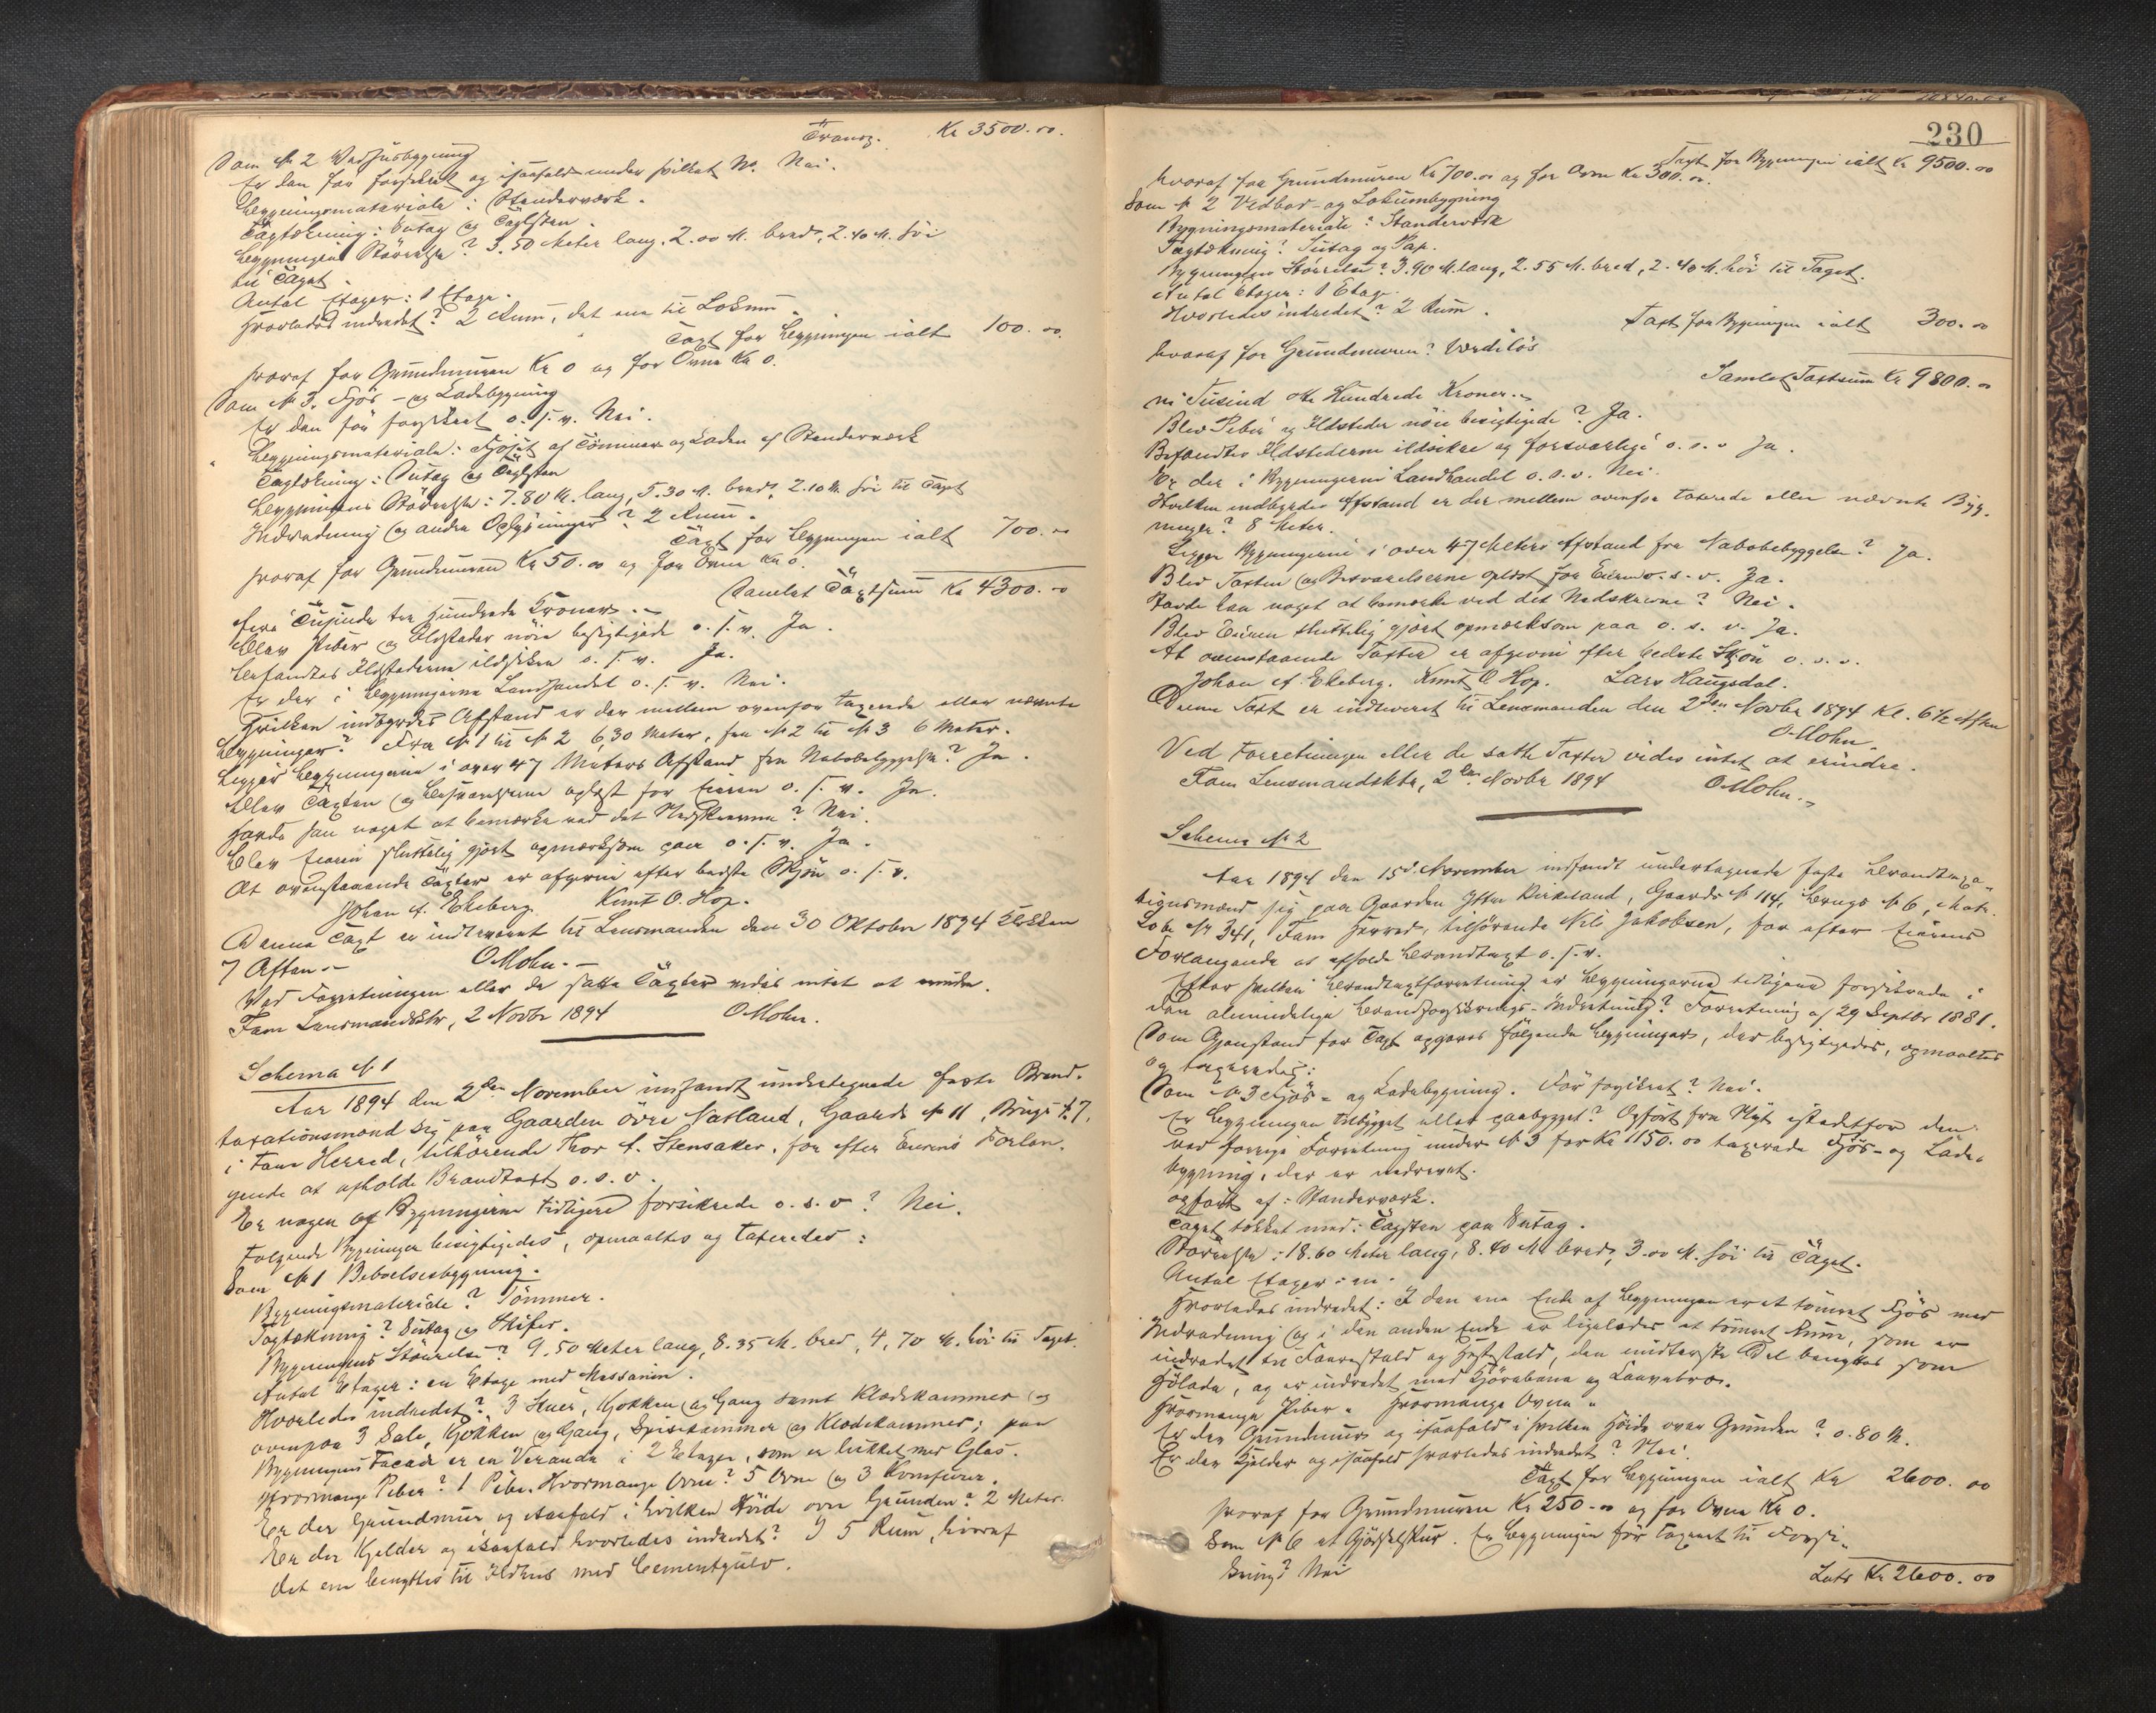 Transp. Kr 3500.00.
Som № 2 Vedhusbygning
Er den før forsikret og isaafald under hvilket №. Nei.
Bygningsmateriale: Stenderværk.
Tagtækning: Sutag og Taglsten.
Bygningens Størrelse? 3.50 Meter lang, 2.00 M. bred, 2.40 M. høi
til Taget.
Antal Etager: 1 Etage.
Hvorledes indredet? 2 Rum, det ene til Lokum.
Taxt for Bygningen ialt 100.00.
hvoraf for Grundmuren Kr 0 og for Ovne Kr 0.
Som № 3. Fjøs- og Ladebygning
Er den før forsikret o. s. v. Nei.
Bygningsmateriale: Fjøset af Tømmer og Laden af Stenderværk
Tagtækning: Sutag og Taglsten
Bygningens Størrelse: 7.80 M. lang, 5.30 M. bred, 2.10 M. høi til Taget
Indredning og andre Oplysninger? 2 Rum.
Taxt for Bygningen ialt 700.00
hvoraf for Grundmuren Kr 50.00 og for Ovne Kr 0.
Samlet Taxtsum Kr 4300.00
fire Tusinde tre Hundrede Kroner.–
Blev Piber og Ildsteder nøie besigtigede o. s. v. Ja.
Befandtes Ildstederne ildsikre o. s. v. Ja.
Er der i Bygningerne Landhandel o. s. v. Nei.
Hvilken indbyrdes Afstand er der mellem ovenfor taxerede eller nævnte
Bygninger? Fra № 1 til № 2 6,30 Meter, fra № 2 til № 3 6 Meter.
Ligger Bygningerne i over 47 Meters Afstand fra Nabobebyggelse? Ja.
Blev Taxten og Besvarelserne oplæst for Eieren o. s. v. Ja.
Havde han noget at bemærke ved det Nedskrevne? Nei.
Blev Eieren sluttelig gjort opmærksom paa o. s. v. Ja.
At ovenstaaende Taxter er afgivne efter bedste Skjøn o. s. v.
Johan A. Ekeberg. Knut O. Hop.
Denne Taxt er indleveret til Lensmanden den 30 Oktober 1894 Klokken
7 Aften.– O Mohn.–
Ved Forretningen eller de satte Taxter vides intet at erindre.
Fane Lensmandsktr, 2 Novbr 1894 O Mohn.
Schema № 1
Aar 1894 den 2den November indfandt undertegnede faste Brand-
taxationsmænd sig paa Gaarden Övre Natland, Gaards № 11, Brugs № 7,
i Fane Herred, tilhörende Thor A. Stensaker, for efter Eierens Forlan-
gende at afholde Brandtaxt o. s. v.
Er nogen af Bygningerne tidligere forsikrede o. s. v? Nei.
Følgende Bygninger besigtigedes, opmaaltes og taxeredes:
Som № 1 Beboelsesbygning.
Bygningsmateriale? Tömmer.
Tagtækning? Sutag og Skifer.
Bygningens Störrelse? 9.50 Meter lang, 8.35 M. bred, 4,70 M. höi til Taget.
Antal Etager: en Etage med Messanin.
Hvorledes indredet? 3 Stuer, Kjøkken og Gang samt Klædekammer og
ovenpaa 3 Sale, Kjøkken og Gang, Spisekammer og Klædekammer; paa
Bygningens Facade er en Veranda i 2 Etager, som er lukket med Glas.
Hvormange Piber? 1 Pibe. Hvormange Ovne? 5 Ovne og 3 Komfurer.
Er der Grundmur og isaafald i hvilken Höide over Grunden? 2 Meter.
Er der Kjelder og isaafald hvorledes indredet? I 5 Rum, hvoraf
det ene benyttes til Ildhus med Cementgulv.
230
Taxt for Bygningen ialt Kr 9500.00
hvoraf for Grundmuren Kr 700.00 og for Ovne Kr 300.00.
Som № 2 Vedbod- og Lokumbygning
Bygningsmateriale: Standerværk
Tagtækning? Sutag og Pap.
Bygningens Störrelse? 3.90 M. lang, 2.55 M. bred, 2.40 M. höi til Taget.
Antal Etager: 1 Etage.
Hvorledes indredet? 2 Rum.
Taxt for Bygningen ialt 300.00
hvoraf for Grundmuren? Værdilös
Samlet Taxtsum Kr 9800.00
ni Tusind otte Hundrede Kroner.–
Blev Piber og Ildsteder nöie besigtigede? Ja.
Befandtes Ildstederne ildsikre og forsvarlige o. s. v Ja.
Er der i Bygningerne Landhandel o. s. v. Nei.
Hvilken indbyrdes Afstand er der mellem ovenfor taxerede eller nævnte Byg-
ninger? 8 Meter.
Ligger Bygningerne i over 47 Meters Afstand fra Nabobebyggelse? Ja.
Blev Taxten og Besvarelserne oplæst for Eieren o. s. v. Ja.
Havde han noget at bemærke ved det Nedskrevne? Nei.
Blev Eieren sluttelig gjort opmærksom paa o. s. v. Ja.
At ovenstaaende Taxter er afgivne efter bedste Skjön o. s. v.
Johan A. Ekeberg. Knut O Hop. Lars Haugsdal.
Denne Taxt er indleveret til Lensmanden den 2den Novbr 1894 Kl. 6½ Aften
O Mohn.
Ved Forretningen eller de satte Taxter vides intet at erindre.
Fane Lensmandsktr, 2den Novbr 1894 O Mohn.–
Schema № 2
Aar 1894 den 15d. November indfandt undertegnede faste Brandtaxa-
tionsmænd sig paa Gaarden Ytre Birkeland, Gaards № 114, Brugs № 6, Matr.
Lobe № 341, Fane Herred, tilhørende Nils Jakobsen, for efter Eierens
Forlangende at afholde Brandtaxt o. s. v.
Efter hvilken Brandtaxtforretning er Bygningerne tidligere forsikrede i
den almindelige Brandforsikrings-Indretning? Forretning af 29 Septbr 1881.
Som Gjenstand for Taxt opgaves følgende Bygninger, der besigtigedes, opmaaltes
og taxeredes:
Som № 3 Fjøs- og Ladebygning. Før forsikret? Nei.
Er Bygningen tilbygget eller paabygget? Opført fra Nyt istedetfor den
ved forrige Forretning under № 3 for Kr 1150.00 taxerede Fjøs- og Lade-
bygning, der er nedrevet.
opført af: Standerværk.
Taget tækket med: Tagsten paa Sutag.
Størrelse: 18.60 Meter lang, 8.40 M. bred, 3.00 M. høi til Taget.
Antal Etager: en.
Hvorledes indredet: I den ene Ende af Bygningen er et tømret Fjøs med
Indredning og i den anden Ende er ligeledes et tømret Rum, som er
indredet til Faurestald og Hestestald, den midterste Del benyttes som
Hølade, og er indredet med Kjørebane og Laavebro.
Hvormange Piber " Hvormange Ovne "
Er der Grundmur og isaafald i hvilken Høide over Grunden? 0.80 M.
Er der Kjelder og isaafald hvorledes indredet? Nei.
Taxt for Bygningen ialt Kr 2600.00
hvoraf for Grundmuren Kr 250.00 og for Ovne Kr 0.
Som № 6 et Gjødselskur. Er Bygningen før taxeret til Forsi-
kring? Nei
Lats Kr 2600.00